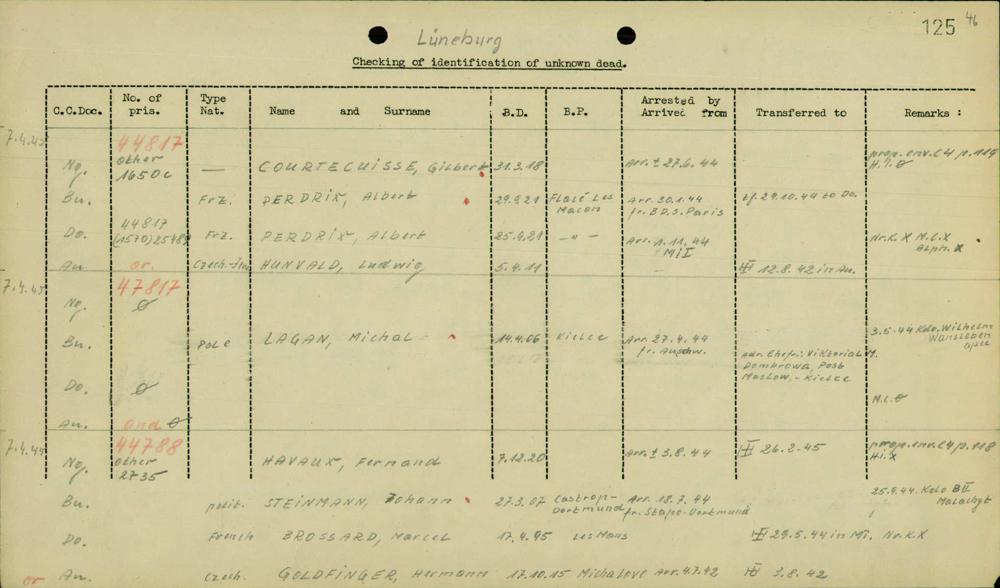 125 46
Lüneburg
Checking of identification of unknown dead.
C.C.Doc. No. of pris. Type Nat. Name and Surname B.D. B.P. Arrested by Arrived from Transferred to Remarks :
7.4.45 44817
Ng. other 1650c — COURTECUISSE, Gilbert 31.3.18 Arr. ± 27.6.44 prop. env. C4 p. 114 H.i.Ø
Bu. Frz. PERDRIX, Albert 29.9.21 Flacé Les Macon Arr. 30.1.44 fr. B.D.S. Paris tf. 29.10.44 to Do.
Do. 44817 Frz. PERDRIX, Albert 25.9.21 — " — Arr. 1.11.44 MiI Nr.K.X N.C.X Alph. X
Au. or. HUNVALD, Ludwig 5.4.11 — 12.8.42 in Au.
7.4.45 47817
Ng. Ø
Bu. Pole LAGAN, Michal 14.4.06 Kielce Arr. 27.4.44 fr. Auschw. adr. Ehefr.: Viktoria M. Dombrowa, Post Maslow, - Kielce 3.5.44 Kdo. Wilhelm Wansleben
Do. Ø N.C.Ø
Au. and Ø
7.4.45 44788
Ng. other 2735 HAVAUX, Fernand 7.12.20 Arr. ± 3.8.44 26.2.45 prop. env. C4 p. 118 H.i.X
Bu. polit. STEINMANN, Johann 27.3.07 Castrop-Dortmund Arr. 18.7.44 fr. Stapo-Dortmund 25.9.44 Kdo BII Malachyt
Do. French BROSSARD, Marcel 17.4.95 Les Mans 29.5.44 in Mi. Nr.K.X
or Au. Czech. GOLDFINGER, Hermann 17.10.15 Michalove Arr. 4.7.42 3.8.42